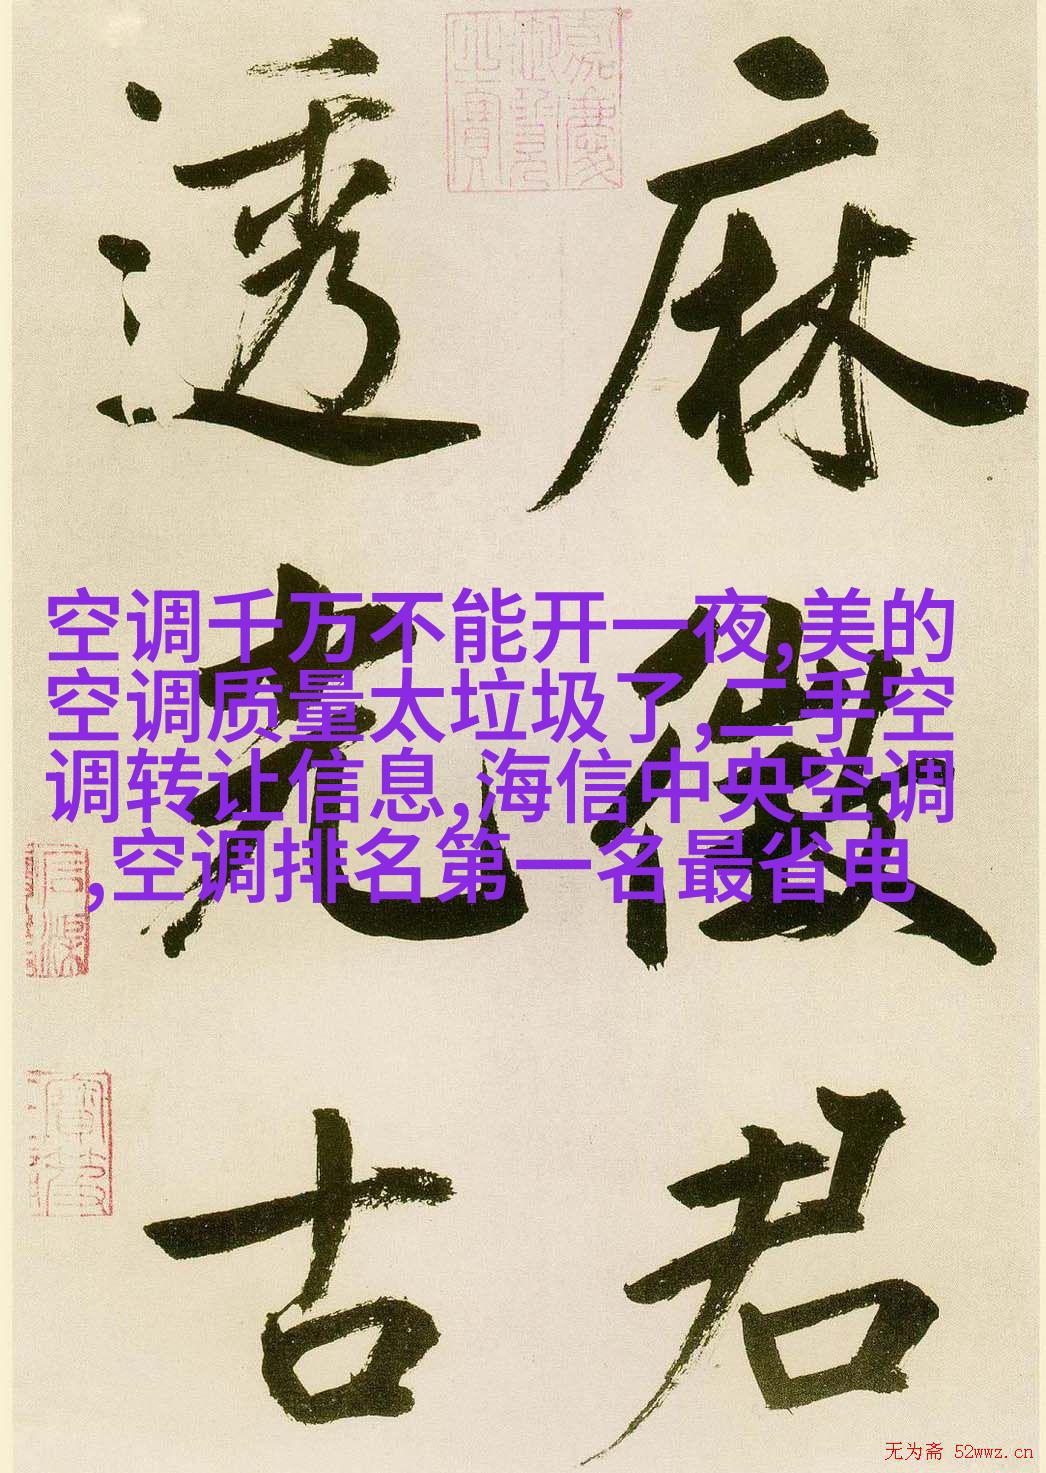 麻徵君
透光古
空调千万不能开一夜,美的
空调质量太垃圾了,二手空
调转让信息,海信中央空调
,空调排名第一名最省电
无为斋 52wwz.cn